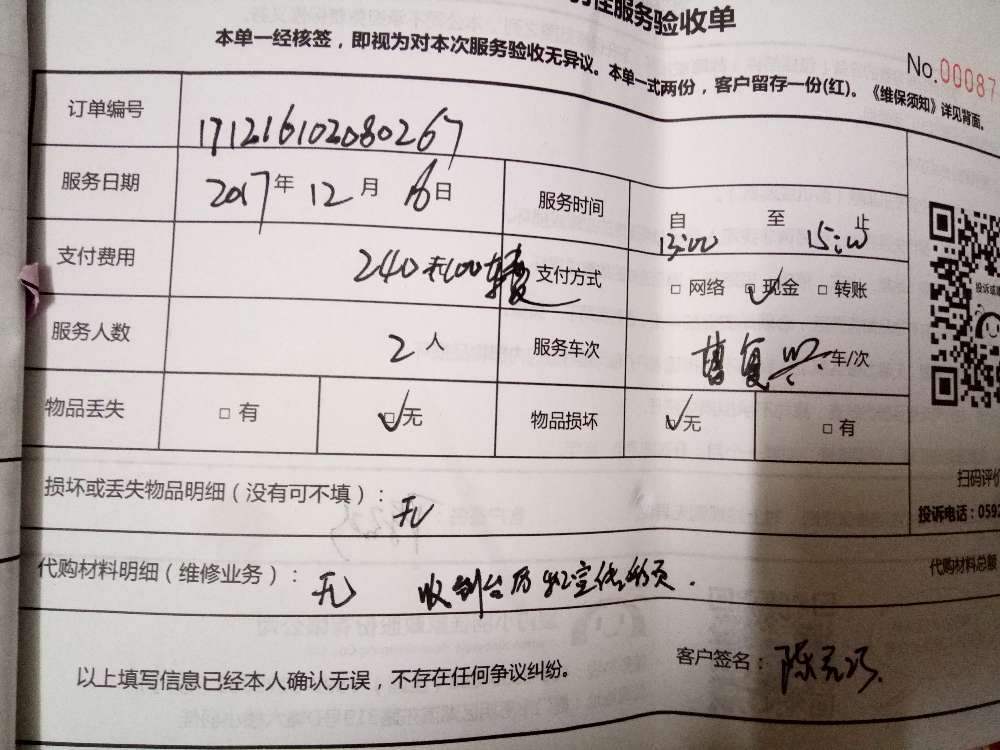 佳服务验收单
本单一经核签，即视为对本次服务验收无异议。本单一式两份，客户留存一份(红)。《维保须知》详见背面。
No.00087
订单编号 171216102080267
服务日期 2017年 12 月 16 日 服务时间 自 13:00 至 15:00 止
支付费用 240 支付方式 □ 网络 ☑ 现金 □ 转账
服务人数 2 人 服务车次 车/次
物品丢失 □ 有 ☑ 无 物品损坏 ☑ 无 □ 有
损坏或丢失物品明细（没有可不填）： 无
代购材料明细（维修业务）： 无 收到台历 宣传
代购材料总额
以上填写信息已经本人确认无误，不存在任何争议纠纷。
客户签名： 陈
投诉或
扫码评价
投诉电话：0592